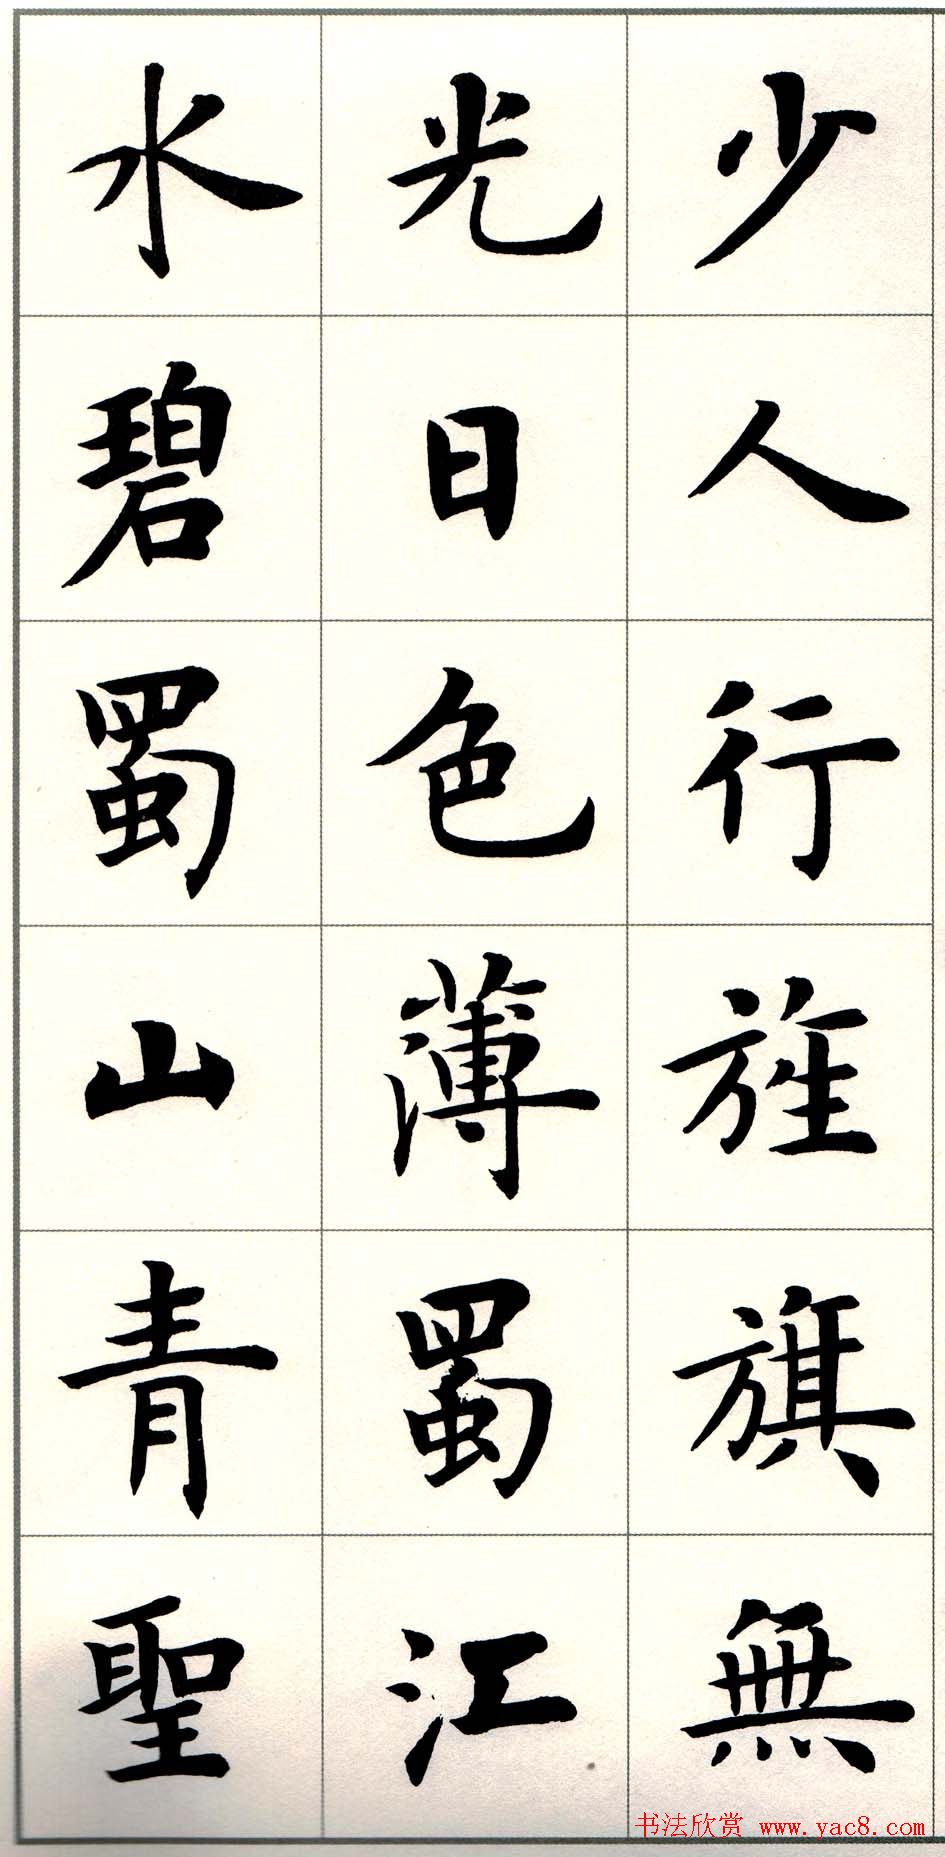 少人行旌旗無
光日色薄蜀江
水碧蜀山青聖
书法欣赏 www.yac8.com